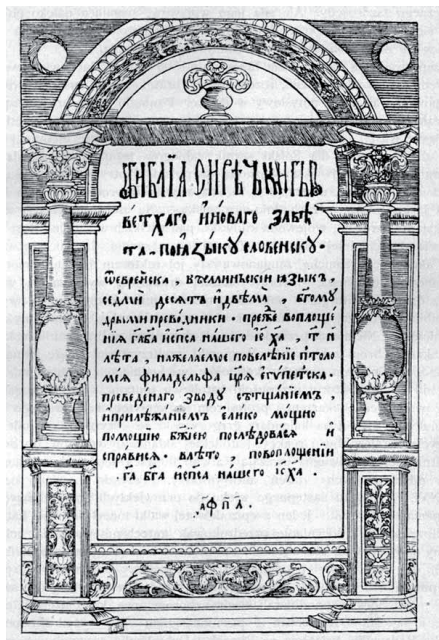 БИБЛІЯ СИРѢЧЬ КНИГЫ
ветхаго и҆ новаго завѣ
та. по ꙗ҆зыку словенску.
Ѿеврейска, въ еллиньскїи ꙗзыкъ,
седмию десѧт и҆ двѣма, бг҃ому
дрыми преводники. преже воплоще
нїѧ га҃ бга҃ и҆ сп҃са нашего і҆с҃ ха҃,
лѣта, на желаемое повелѣнїе птоло
меѧ филаделфа цр҃ѧ є҆гипетска.
преведенаго зводу стъщанїемъ,
и҆ прилѣжанїемъ є҆лико мощно
помощию бж҃їею послѣдовасѧ и҆
справисѧ. в лѣто, по воплощенїи
га҃ бга҃ и҆ сп҃са нашего і҆с҃ ха҃.
҂афпа.